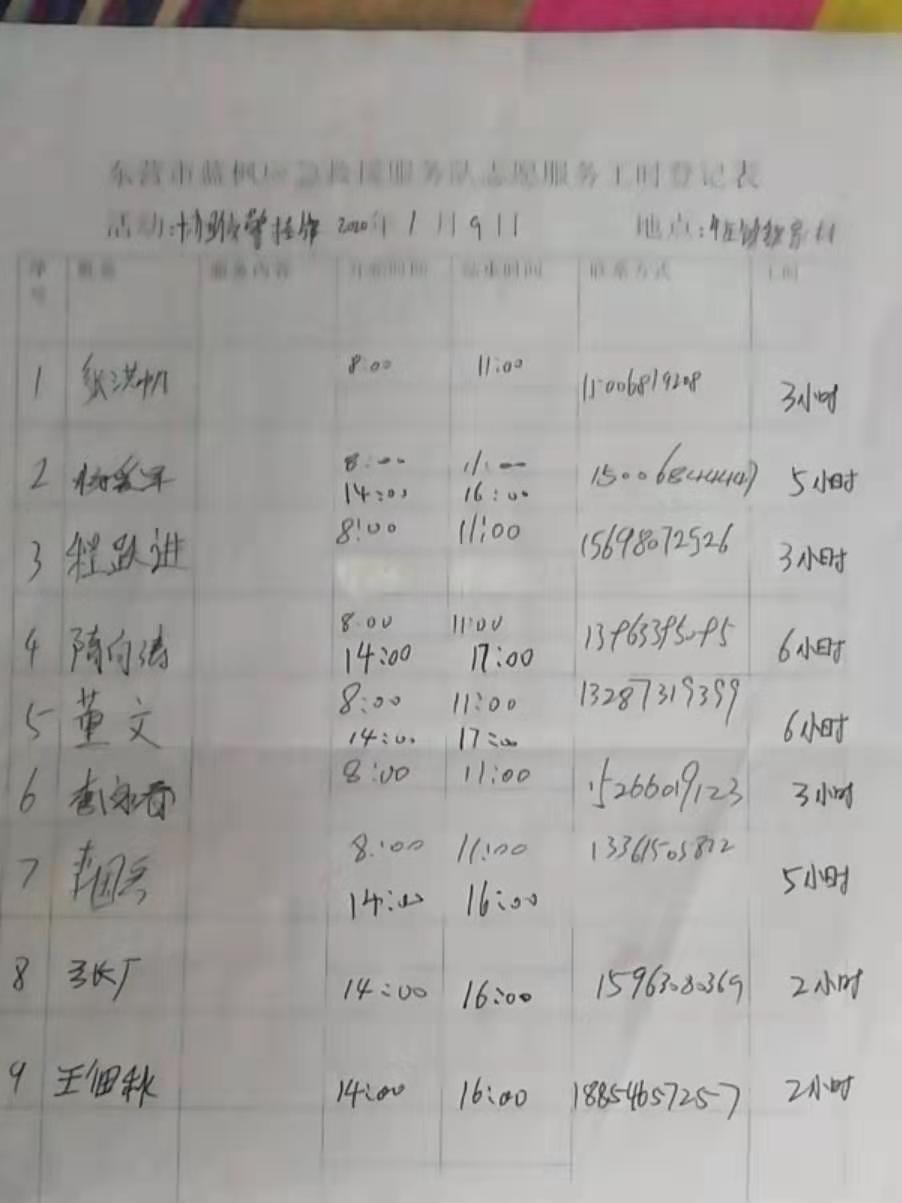 东营市蓝枫应急救援服务队志愿服务工时登记表
活动: 2020年1月9日 地点:
序号 姓名 服务内容 开始时间 结束时间 联系方式 工时
1 张洪帆 8:00 11:00 3小时
2 8:00 11:00 5小时
14:00 16:00
3 程跃进 8:00 11:00 15698072526 3小时
4 隋向涛 8:00 11:00 13963395095 6小时
14:00 17:00
5 董文 8:00 11:00 13287319399 6小时
14:00 17:00
6 8:00 11:00 15266019123 3小时
7 8:00 11:00 13361505872 5小时
14:00 16:00
8 14:00 16:00 15963080369 2小时
9 王佃秋 14:00 16:00 18854657257 2小时